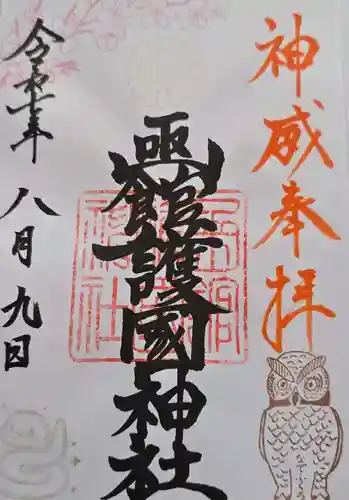 神威奉拝
凾館護國神社
令和七年
八月九日